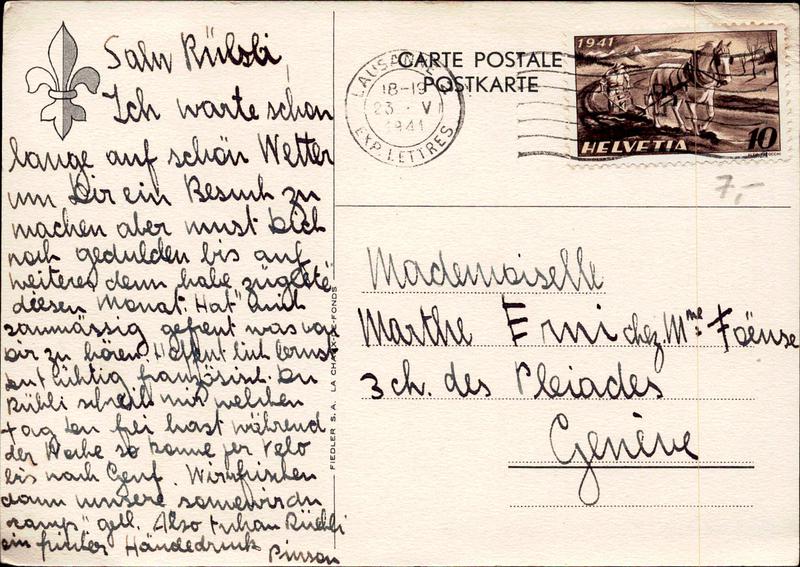 Salu Rübli,
Ich warte schon
lange auf schön Wetter
um Dir ein Besuch zu
machen aber must Dich
noch gedulden bis auf
weiteres denn habe züglete
diesen Monat. Hat mich
saumässig gefreut was von
dir zu hören. Hoffentlich lernst
tüchtig französisch. Du
Rübli schreib mir welchen
Tag Du frei hast während
der Woche so komme per Velo
bis nach Genf. Wir frischen
dann unsere
camp" gell. Also Rübli
ein Händedruck
Pinson
FIEDLER S. A. LA CHAUX-DE-FONDS
CARTE POSTALE
POSTKARTE
LAUSANNE
18-19
23. VI
1941
EXP. LETTRES
1941
HELVETIA
10
7,-
Mademoiselle
Marthe Erni chez Mme Foënse
3 ch. des Pleiades
Genève